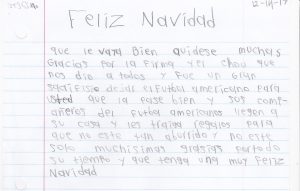 Feliz Navidad
que le vaya Bien quidese muchas
Gracias por la firma y el chou que
nos dio a todos y fue un gran
sacrifisio dejar el futbol americano para
usted que la pase bien y sus comp-
añeros del futbol americanos llegen a
su casa y les traiga regalos para
que no esté tan aburrido y no este
solo muchisimas grasias por todo
su tiempo y que tenga una muy Feliz
Navidad